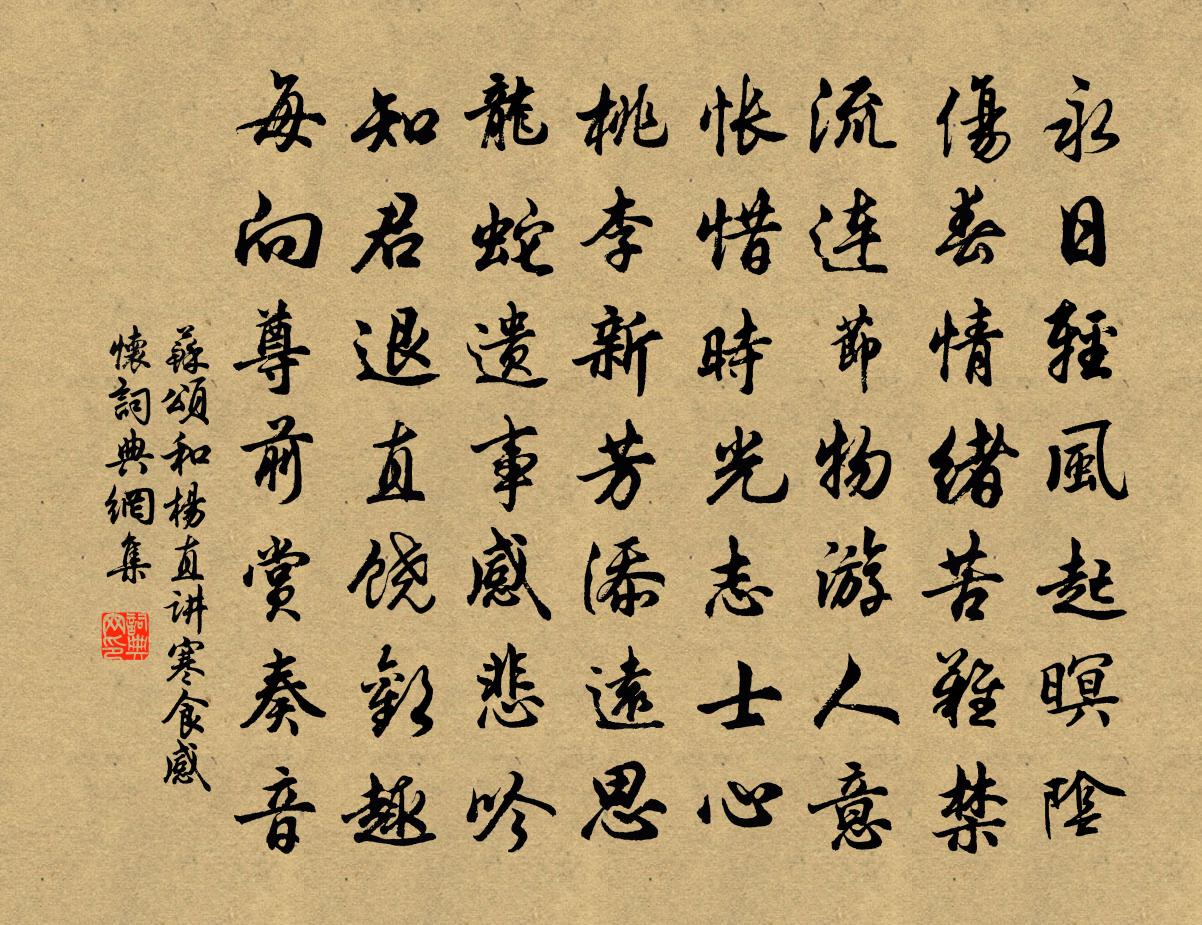 永日輕風起暝陰
傷春情緒苦難禁
流連節物游人意
悵惜時光志士心
桃李新芳添遠思
龍蛇遺事感悲吟
知君退直饶歡趣
每向尊前賞奏音
蘇頌和楊直讲寒食感
懷詞典網集
詞典网印